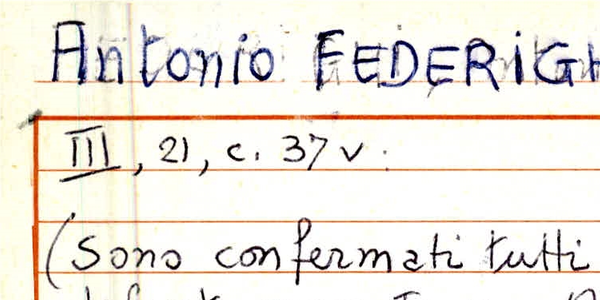 Antonio FEDERIGH
III, 21, c. 37 v.
(Sono confermati tutti